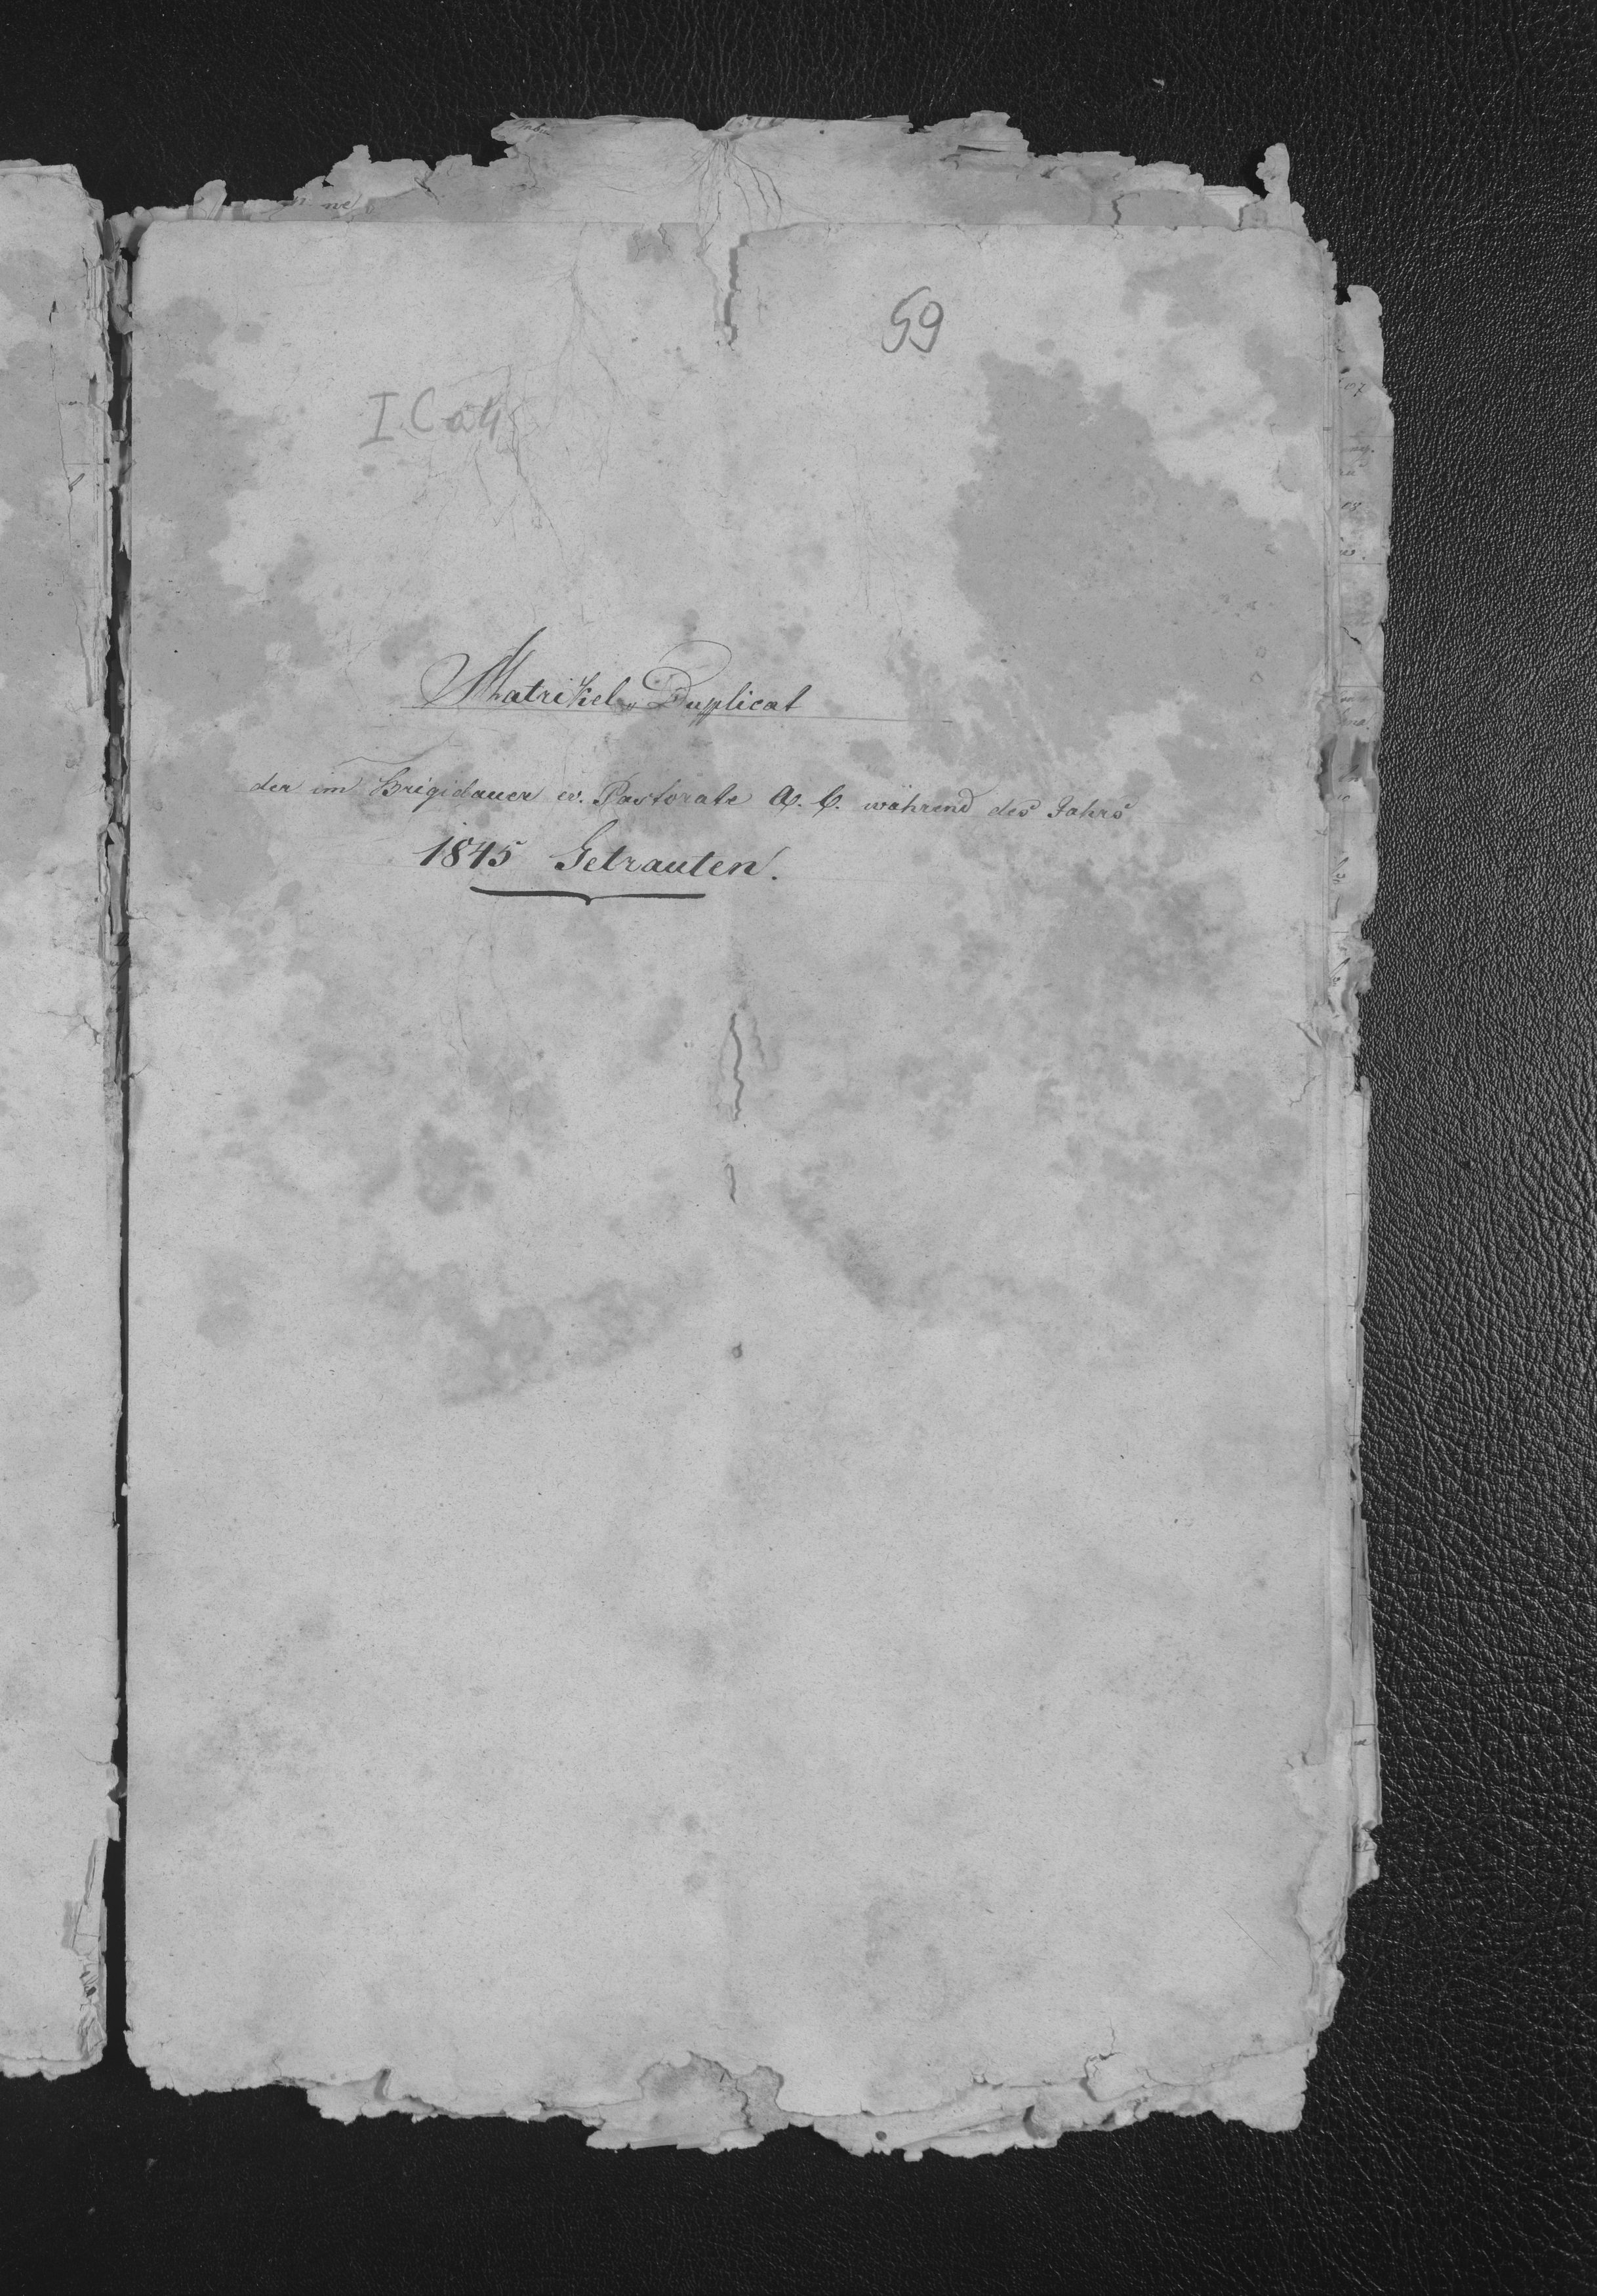 59
I. C a 4
Matrikel„Duplicat
der im Brigidauer ev. Pastorate A. C. während des Jahrs
1845 Getrauten.